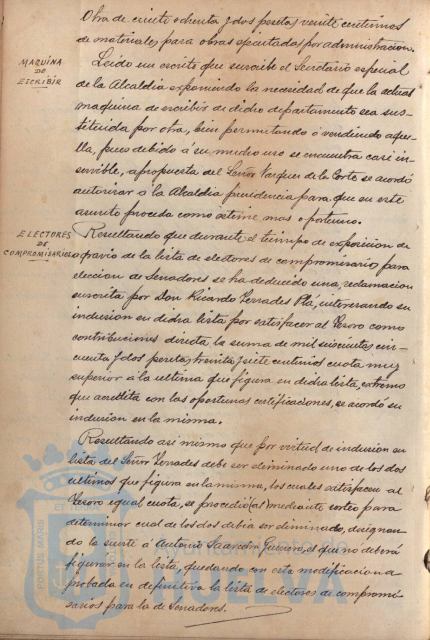 Otra de ciento ochenta y dos pesetas veinte centimos
de materiales para obras ejecutadas por administracion.
MAQUINA
DE
ESCRIBIR
Leido un escrito que suscribe el Secretario especial
de la Alcaldia exponiendo la necesidad de que la actual
maquina de escribir de dicho departamento sea sus-
tituida por otra, bien permutando ó vendiendo aque-
lla, pues debido á su mucho uso se encuentra casi in-
servible, a propuesta del Señor Vazquez de la Corte se acordó
autorizar á la Alcaldia presidencia para que en este
asunto proceda como estime mas oportuno.
ELECTORES
DE
COMPROMISARIOS
Resultando que durante el tiempo de exposicion
agravio de la lista de electores de compromisarios para
eleccion de Senadores se ha deducido una reclamacion
suscrita por Don Ricardo Terrades Plá, interesando su
inclusion en dicha lista por satisfacer al Tesoro como
contribuciones directa la suma de mil seiscientas cin-
cuenta y dos pesetas treinta y siete centimos cuota muy
superior á la ultima que figura en dicha lista, extremo
que acredita con las oportunas certificaciones, se acordó su
inclusion en la misma.
Resultando asi mismo que por virtud de inclusion en
lista del Señor Terrades debe ser eliminado uno de los dos
ultimos que figura en la misma, los cuales satisfacen al
Tesoro igual cuota, se procedió mediante sorteo para
determinar cual de los dos debia ser eliminado, designan-
do la suerte á Antonio Guerrero, el que no deberá
figurar en la lista, quedando con esta modificacion a-
probada en definitiva la lista de electores de compromi-
sarios para la de Senadores.
PORTUS MARIS
Ayuntamiento de
HUELVA